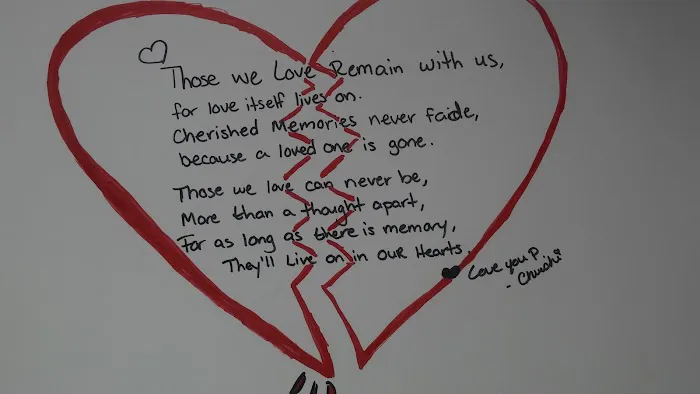 Those we Love Remain with us,
for love itself lives on.
Cherished Memories never fade,
because a loved one is gone.
Those we love can never be,
More than a thought apart,
For as long as there is memory,
They'll Live on in our Hearts.
Love you P.